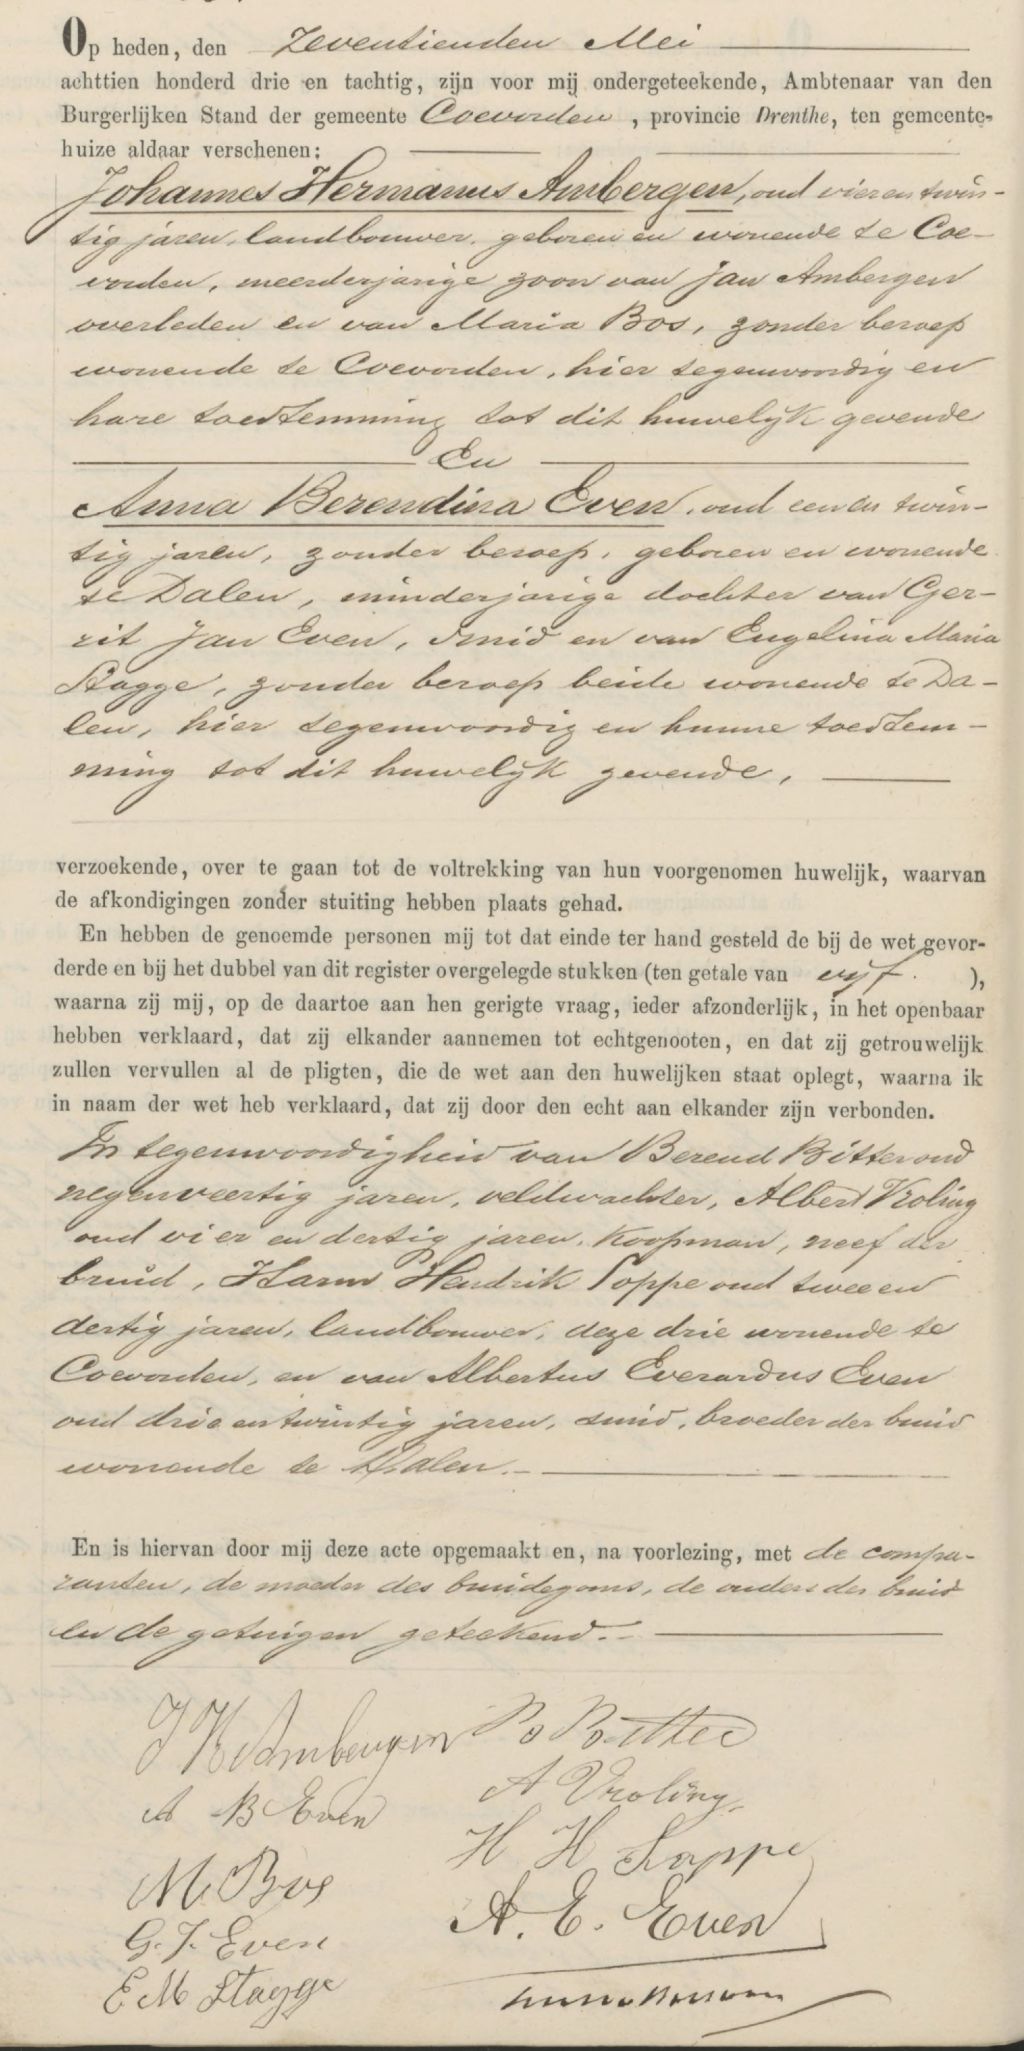 Op heden, den Zeventienden Mei
achttien honderd drie en tachtig, zijn voor mij ondergeteekende, Ambtenaar van den
Burgerlijken Stand der gemeente Coevorden, provincie Drenthe, ten gemeente-
huize aldaar verschenen:
Johannes Hermanus Ambergen, oud vier en twin-
tig jaren, landbouwer, geboren en wonende te Coe-
vorden, meerderjarige zoon van Jan Ambergen
overleden en van Maria Bos, zonder beroep
wonende te Coevorden, hier tegenwoordig en
hare toestemming tot dit huwelijk gevende
En
Anna Berendina Even, oud een en twin-
tig jaren, zonder beroep, geboren en wonende
te Dalen, minderjarige dochter van Ger-
rit Jan Even, smid en van Engelina Maria
Stagge, zonder beroep beide wonende te Da-
len, hier tegenwoordig en hunne toestem-
ming tot dit huwelijk gevende,
verzoekende, over te gaan tot de voltrekking van hun voorgenomen huwelijk, waarvan
de afkondigingen zonder stuiting hebben plaats gehad.
En hebben de genoemde personen mij tot dat einde ter hand gesteld de bij de wet gevor-
derde en bij het dubbel van dit register overgelegde stukken (ten getale van vijf. ),
waarna zij mij, op de daartoe aan hen gerigte vraag, ieder afzonderlijk, in het openbaar
hebben verklaard, dat zij elkander aannemen tot echtgenooten, en dat zij getrouwelijk
zullen vervullen al de pligten, die de wet aan den huwelijken staat oplegt, waarna ik
in naam der wet heb verklaard, dat zij door den echt aan elkander zijn verbonden.
In tegenwoordigheid van Berend Bitter oud
negenveertig jaren, veldwachter, Albert Vroling
oud vier en dertig jaren, koopman, neef der
bruid, Harm Hendrik Soppe oud twee en
dertig jaren, landbouwer, deze drie wonende te
Coevorden, en van Albertus Everardus Even
oud drie en twintig jaren, smid, broeder der bruid
wonende te Dalen.
En is hiervan door mij deze acte opgemaakt en, na voorlezing, met de compa-
ranten, de moeder des bruidegoms, de ouders der bruid
en de getuigen geteekend.
J H Ambergen B Bitter
A B Even A Vroling
M Bos H H Soppe
G. J. Even A. E. Even
E M Stagge